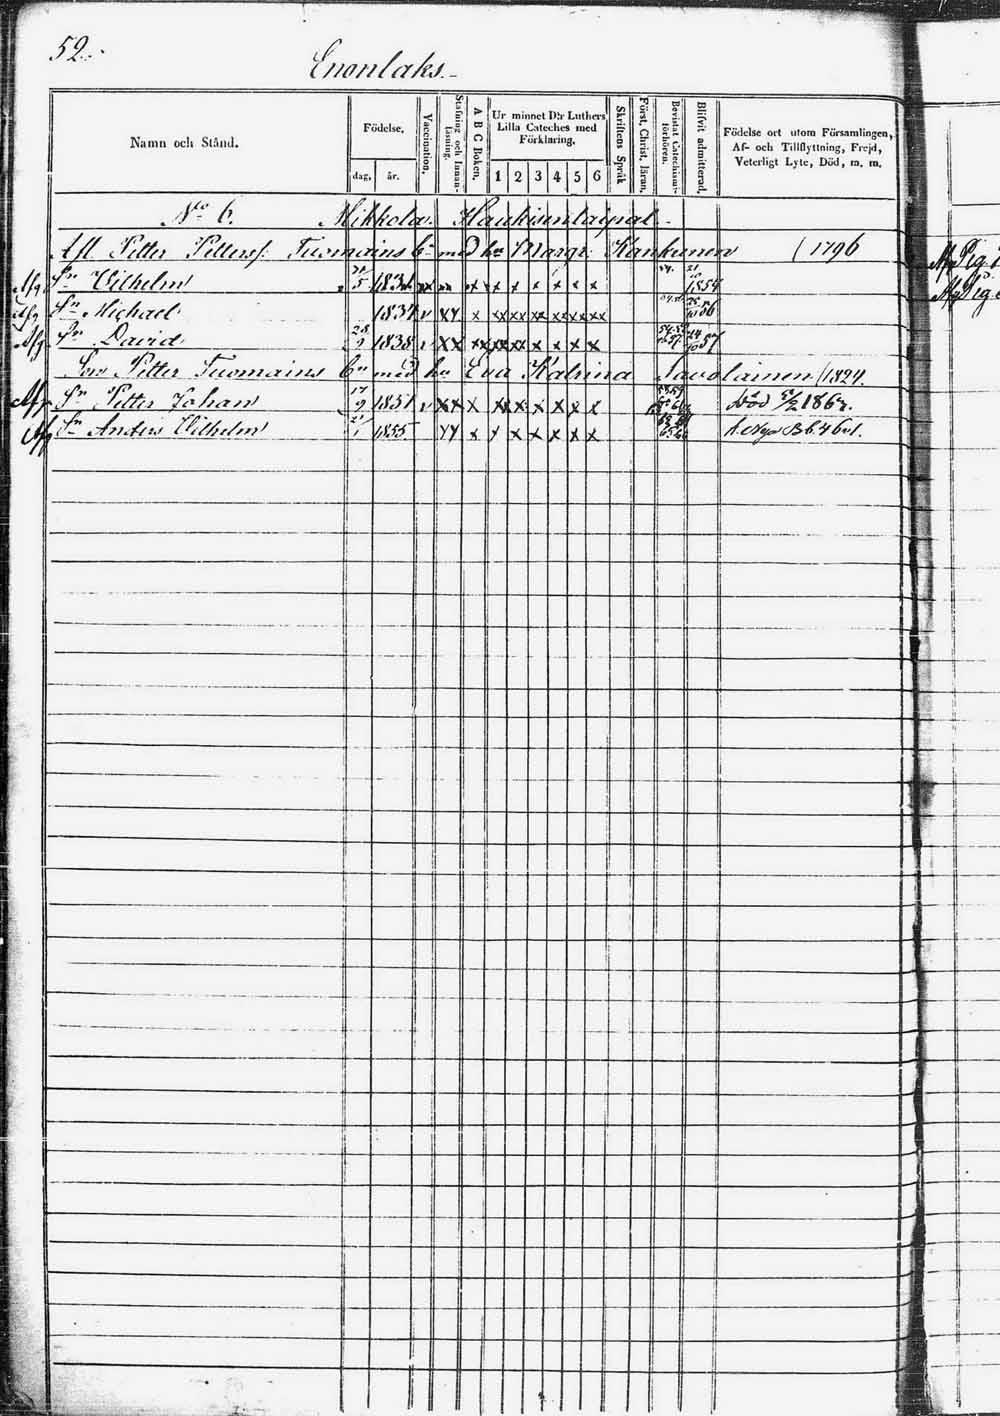 52.
Enonlaks.
Namn och Stånd.
Födelse.
dag, år.
Vaccination.
Stafning och Innanläsning.
A B C Boken.
Ur minnet D:r Luthers Lilla Cateches med Förklaring.
1 2 3 4 5 6
Skriftens Språk
Först. Christ. läran.
Bevistat Catechismiförhören.
Blifvit admitterad.
Födelse ort utom Församlingen, Af- och Tillflyttning, Frejd, Veterligt Lyte, Död, m. m.
N:o 6. Mikkola Haukisentaipal
Afl. Petter Petterss: Tuomains b:n med h:u Margr: Kankunen (1796
Afg S:n Vilhelm 5 1834 x x x x x x x 1854
Afg S:n Michael 1837 v xx x xx xx xx xx xx xx 56
Afg S:n David 28/9 1838 v xx xx xx xx x x x x 24/10 57
Son Petter Tuomains b:n med h:u Eva Katrina Savolainen (1824.
Afg S:n Petter Johan 17/9 1851 v xx x xx x x x x x död 5/2 1867.
Afg S:n Anders Vilhelm 1855 x x x x x x x
Afg Pig
Afg Pig